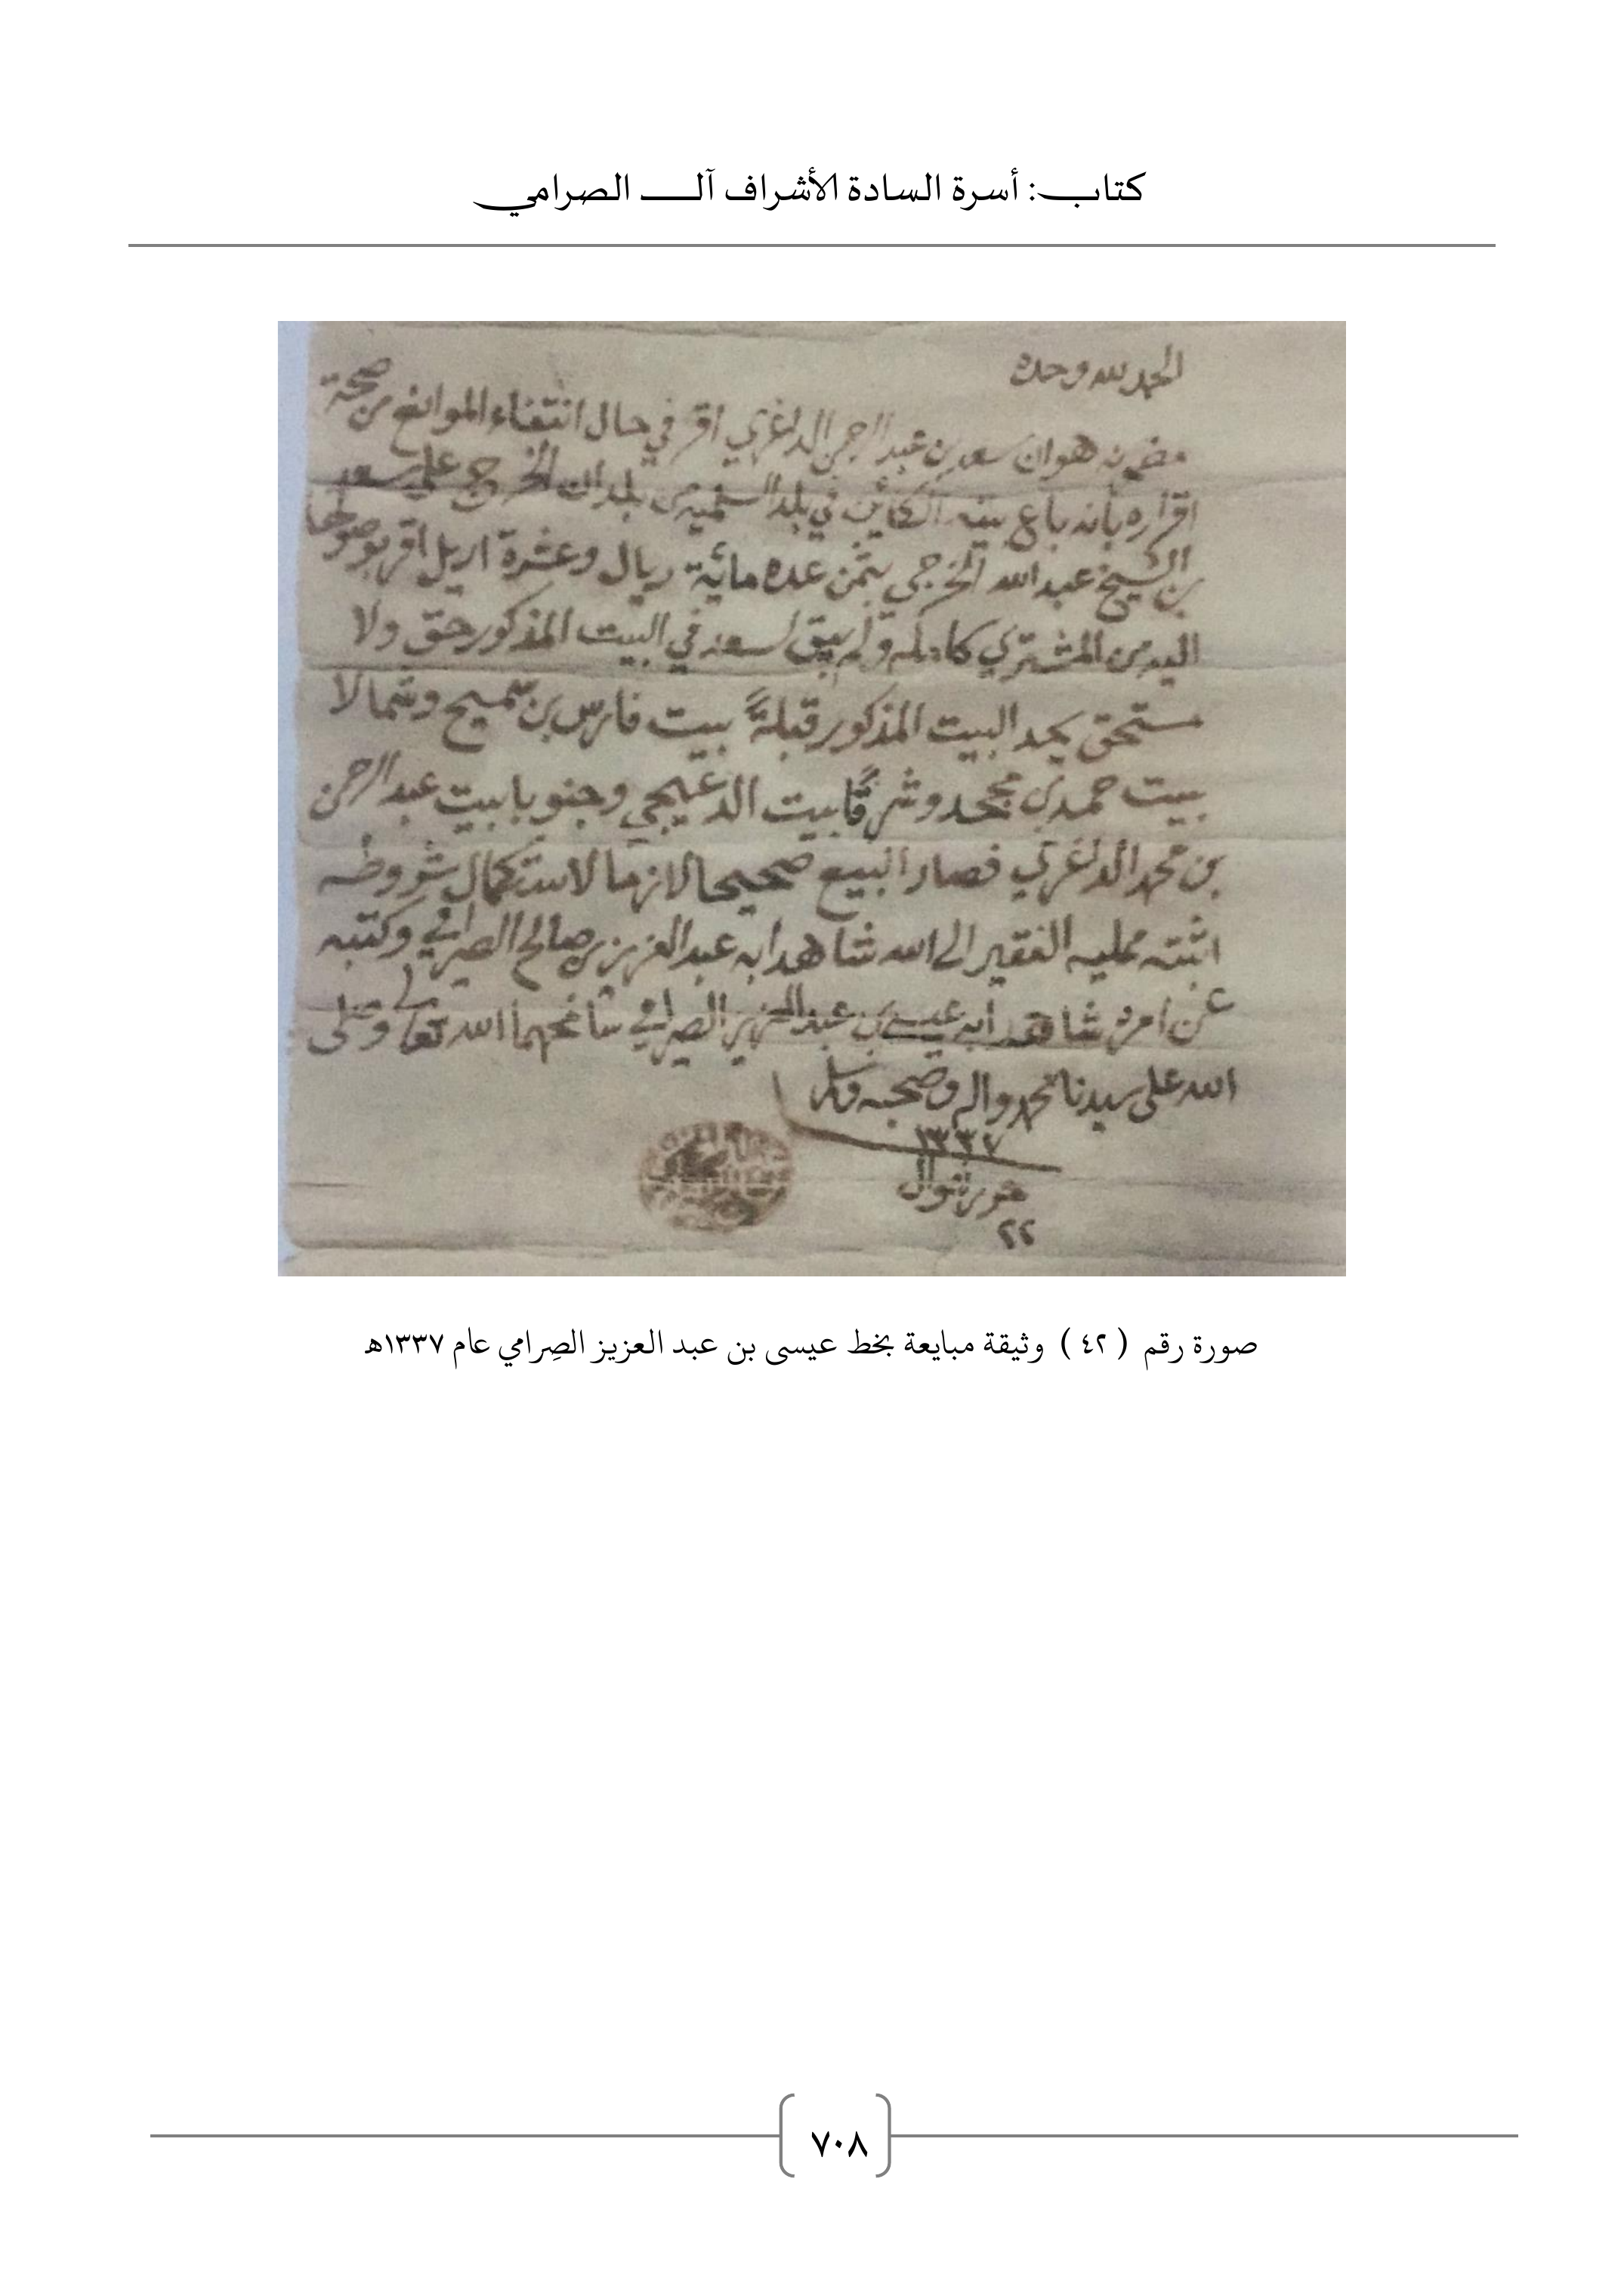 كتاب: أسرة السادة الأشراف آل الصرامي
الحمد لله وحده
مضمونه هو ان سعد بن عبد الرحمن الداغري اقر في حال انتفاء الموانع من صحة
اقراره بانه باع بيته الكائن في بلد السلمية من بلدان الخرج على سعد
بن الشيخ عبد الله الخرجي بثمن عده مائة ريال وعشرة اريل اقر بوصولها
اليه من المشتري كامله ولم يبق لسعد في البيت المذكور حق ولا
مستحق يحد البيت المذكور قبلةً بيت فارس بن سميح وشمالا
بيت حمد بن وشرقًا بيت الدعيجي وجنوبا بيت عبد الرحمن
بن محمد الداغري فصار البيع صحيحا لازما لاستكمال شروطه
اثبته ممليه الفقير الى الله شاهدا به عبد العزيز بن صالح الصرامي وكتبه
عن امره شاهدا به عيسى بن عبد العزيز الصرامي سامحهما الله تعالى وصلى
الله على سيدنا محمد واله وصحبه وسلم
١٣٣٧
حرر شوال
٢٢
صورة رقم ( ٤٢ ) وثيقة مبايعة بخط عيسى بن عبد العزيز الصِرامي عام ١٣٣٧هـ
٧٠٨